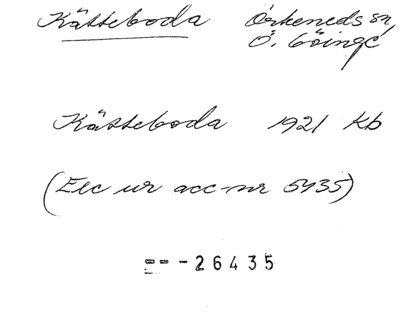 Kätteboda Örkeneds sn,
Ö. Göinge
Kätteboda 1921 kb
(Exc ur acc-nr 5435)
==-26435